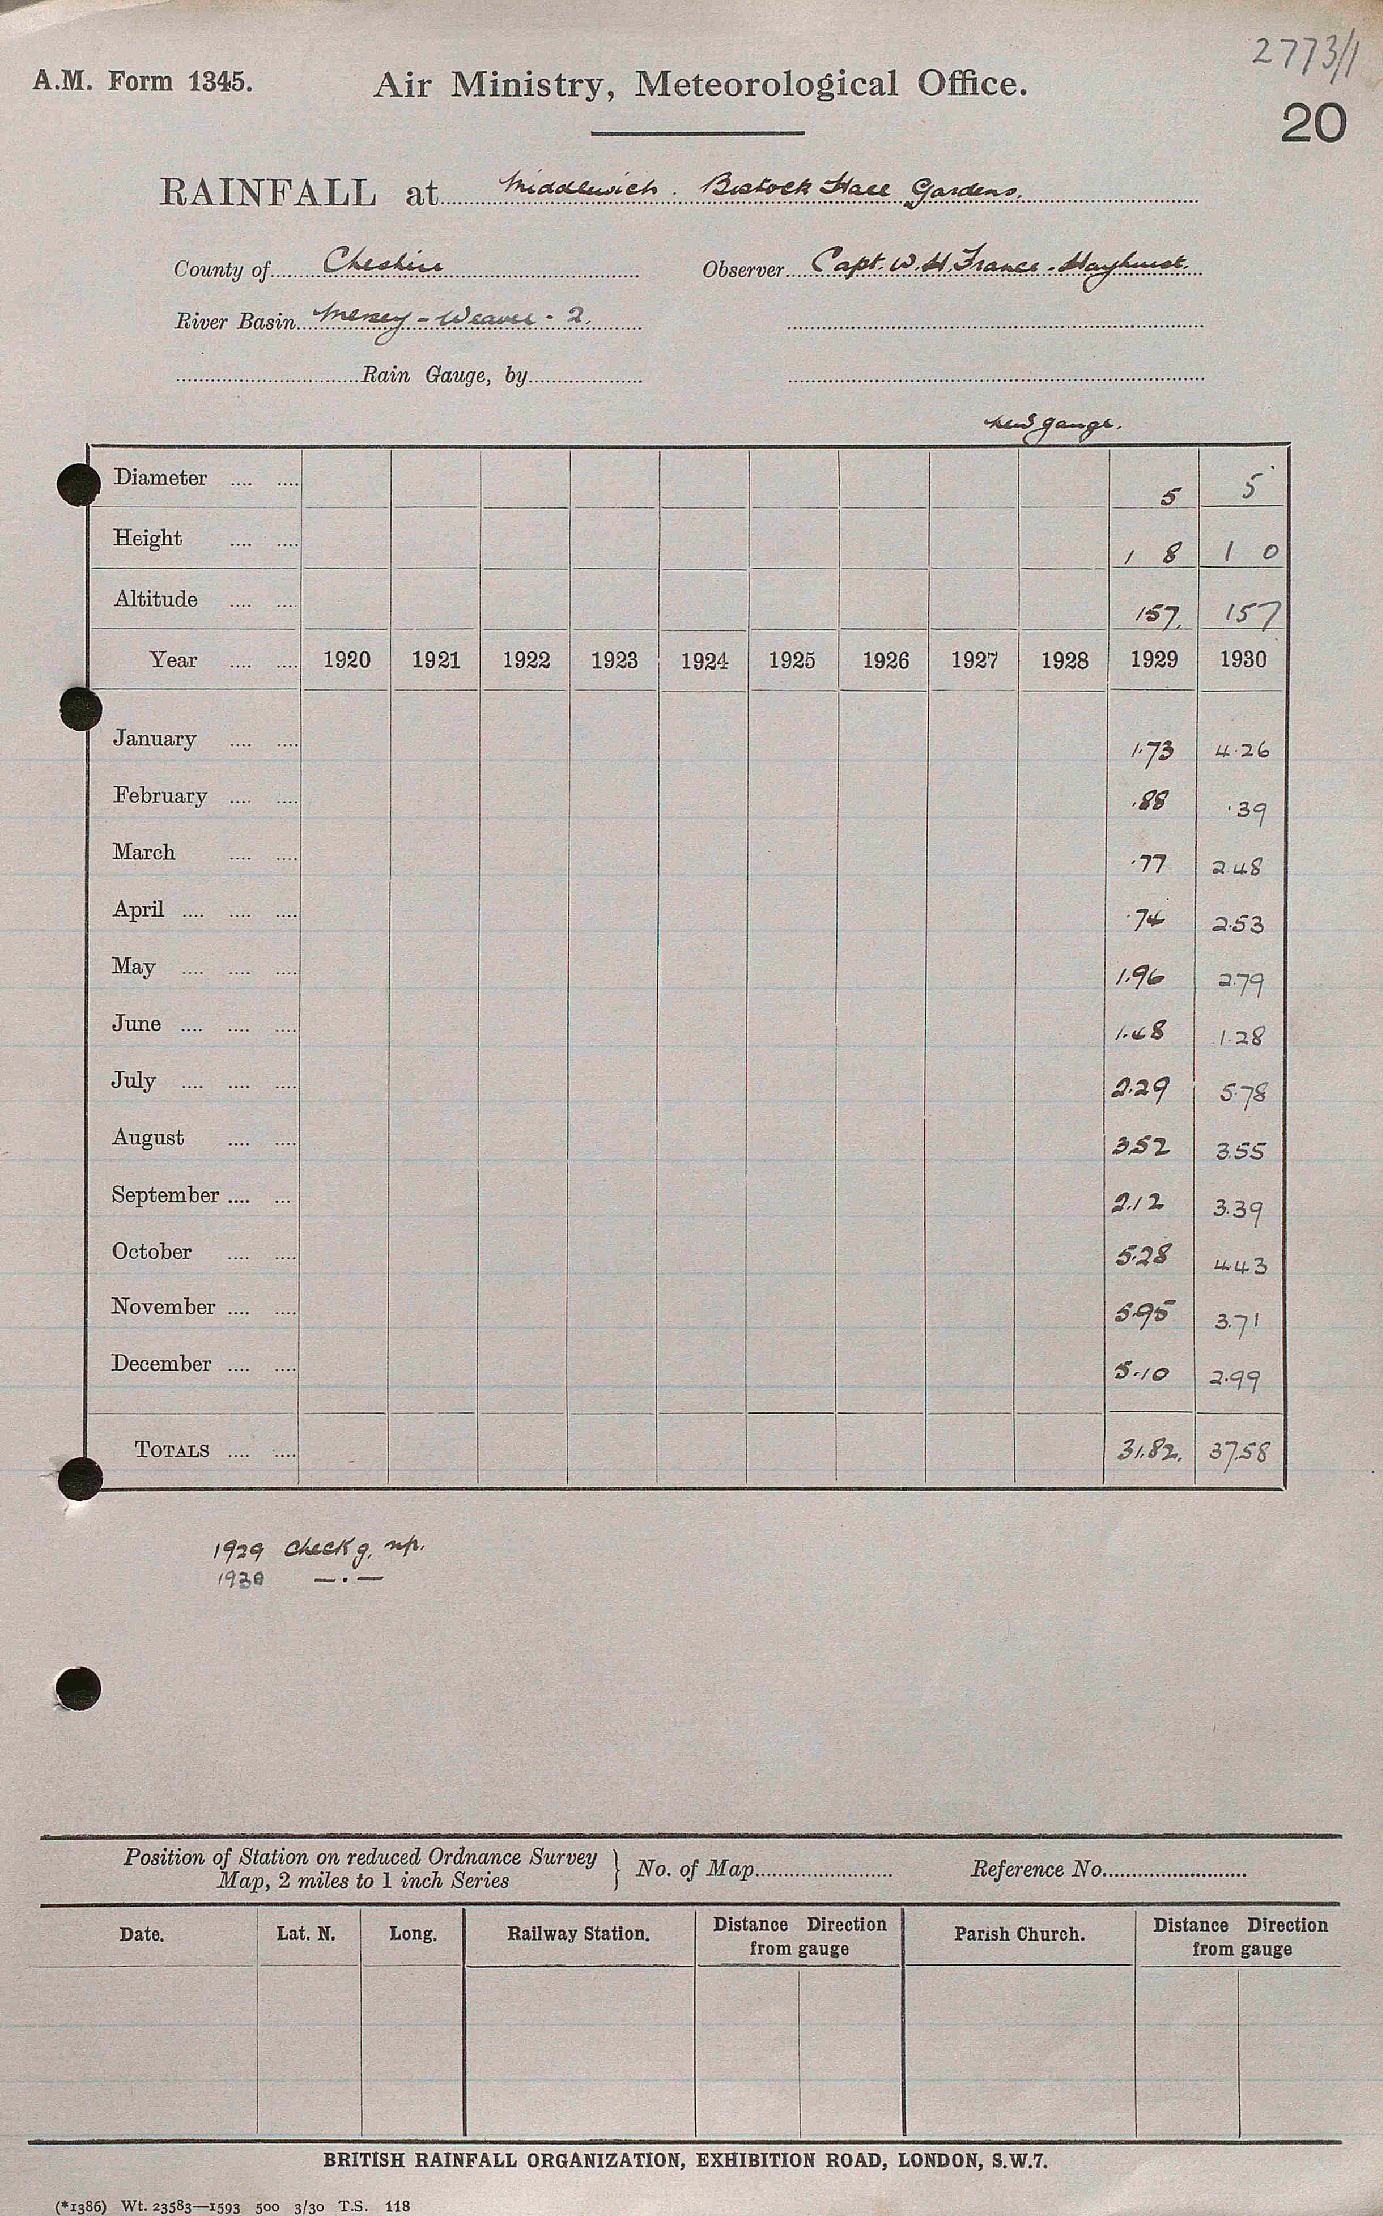 2773/1
A.M. Form 1345.
Air Ministry, Meteorological Office.
20
RAINFALL at Middlewich. Bostock Hall Gardens.
County of Cheshire Observer Capt. W. H. France-Hayhurst.
River Basin Mersey - Weaver - 2.
Rain Gauge, by
new gauge.
Diameter .... .... 5 5
Height .... .... 1 8 1 0
Altitude .... .... 157. 157
Year .... .... 1920 1921 1922 1923 1924 1925 1926 1927 1928 1929 1930
January .... .... 1.73 4.26
February .... .... .88 .39
March .... .... .77 2.48
April .... .... .... .74 2.53
May .... .... .... 1.96 2.79
June .... .... .... 1.48 1.28
July .... .... .... 2.29 5.78
August .... .... 3.52 3.55
September .... .... 2.12 3.39
October .... .... 5.28 4.43
November .... .... 5.95 3.71
December .... .... 5.10 2.99
TOTALS .... .... 31.82. 37.58
1929 Check g. np.
1930 — . —
Position of Station on reduced Ordnance Survey
Map, 2 miles to 1 inch Series } No. of Map Reference No.
Date. Lat. N. Long. Railway Station. Distance Direction from gauge Parish Church. Distance Direction from gauge
BRITISH RAINFALL ORGANIZATION, EXHIBITION ROAD, LONDON, S.W.7.
(*1386) Wt. 23583—1593 500 3/30 T.S. 118